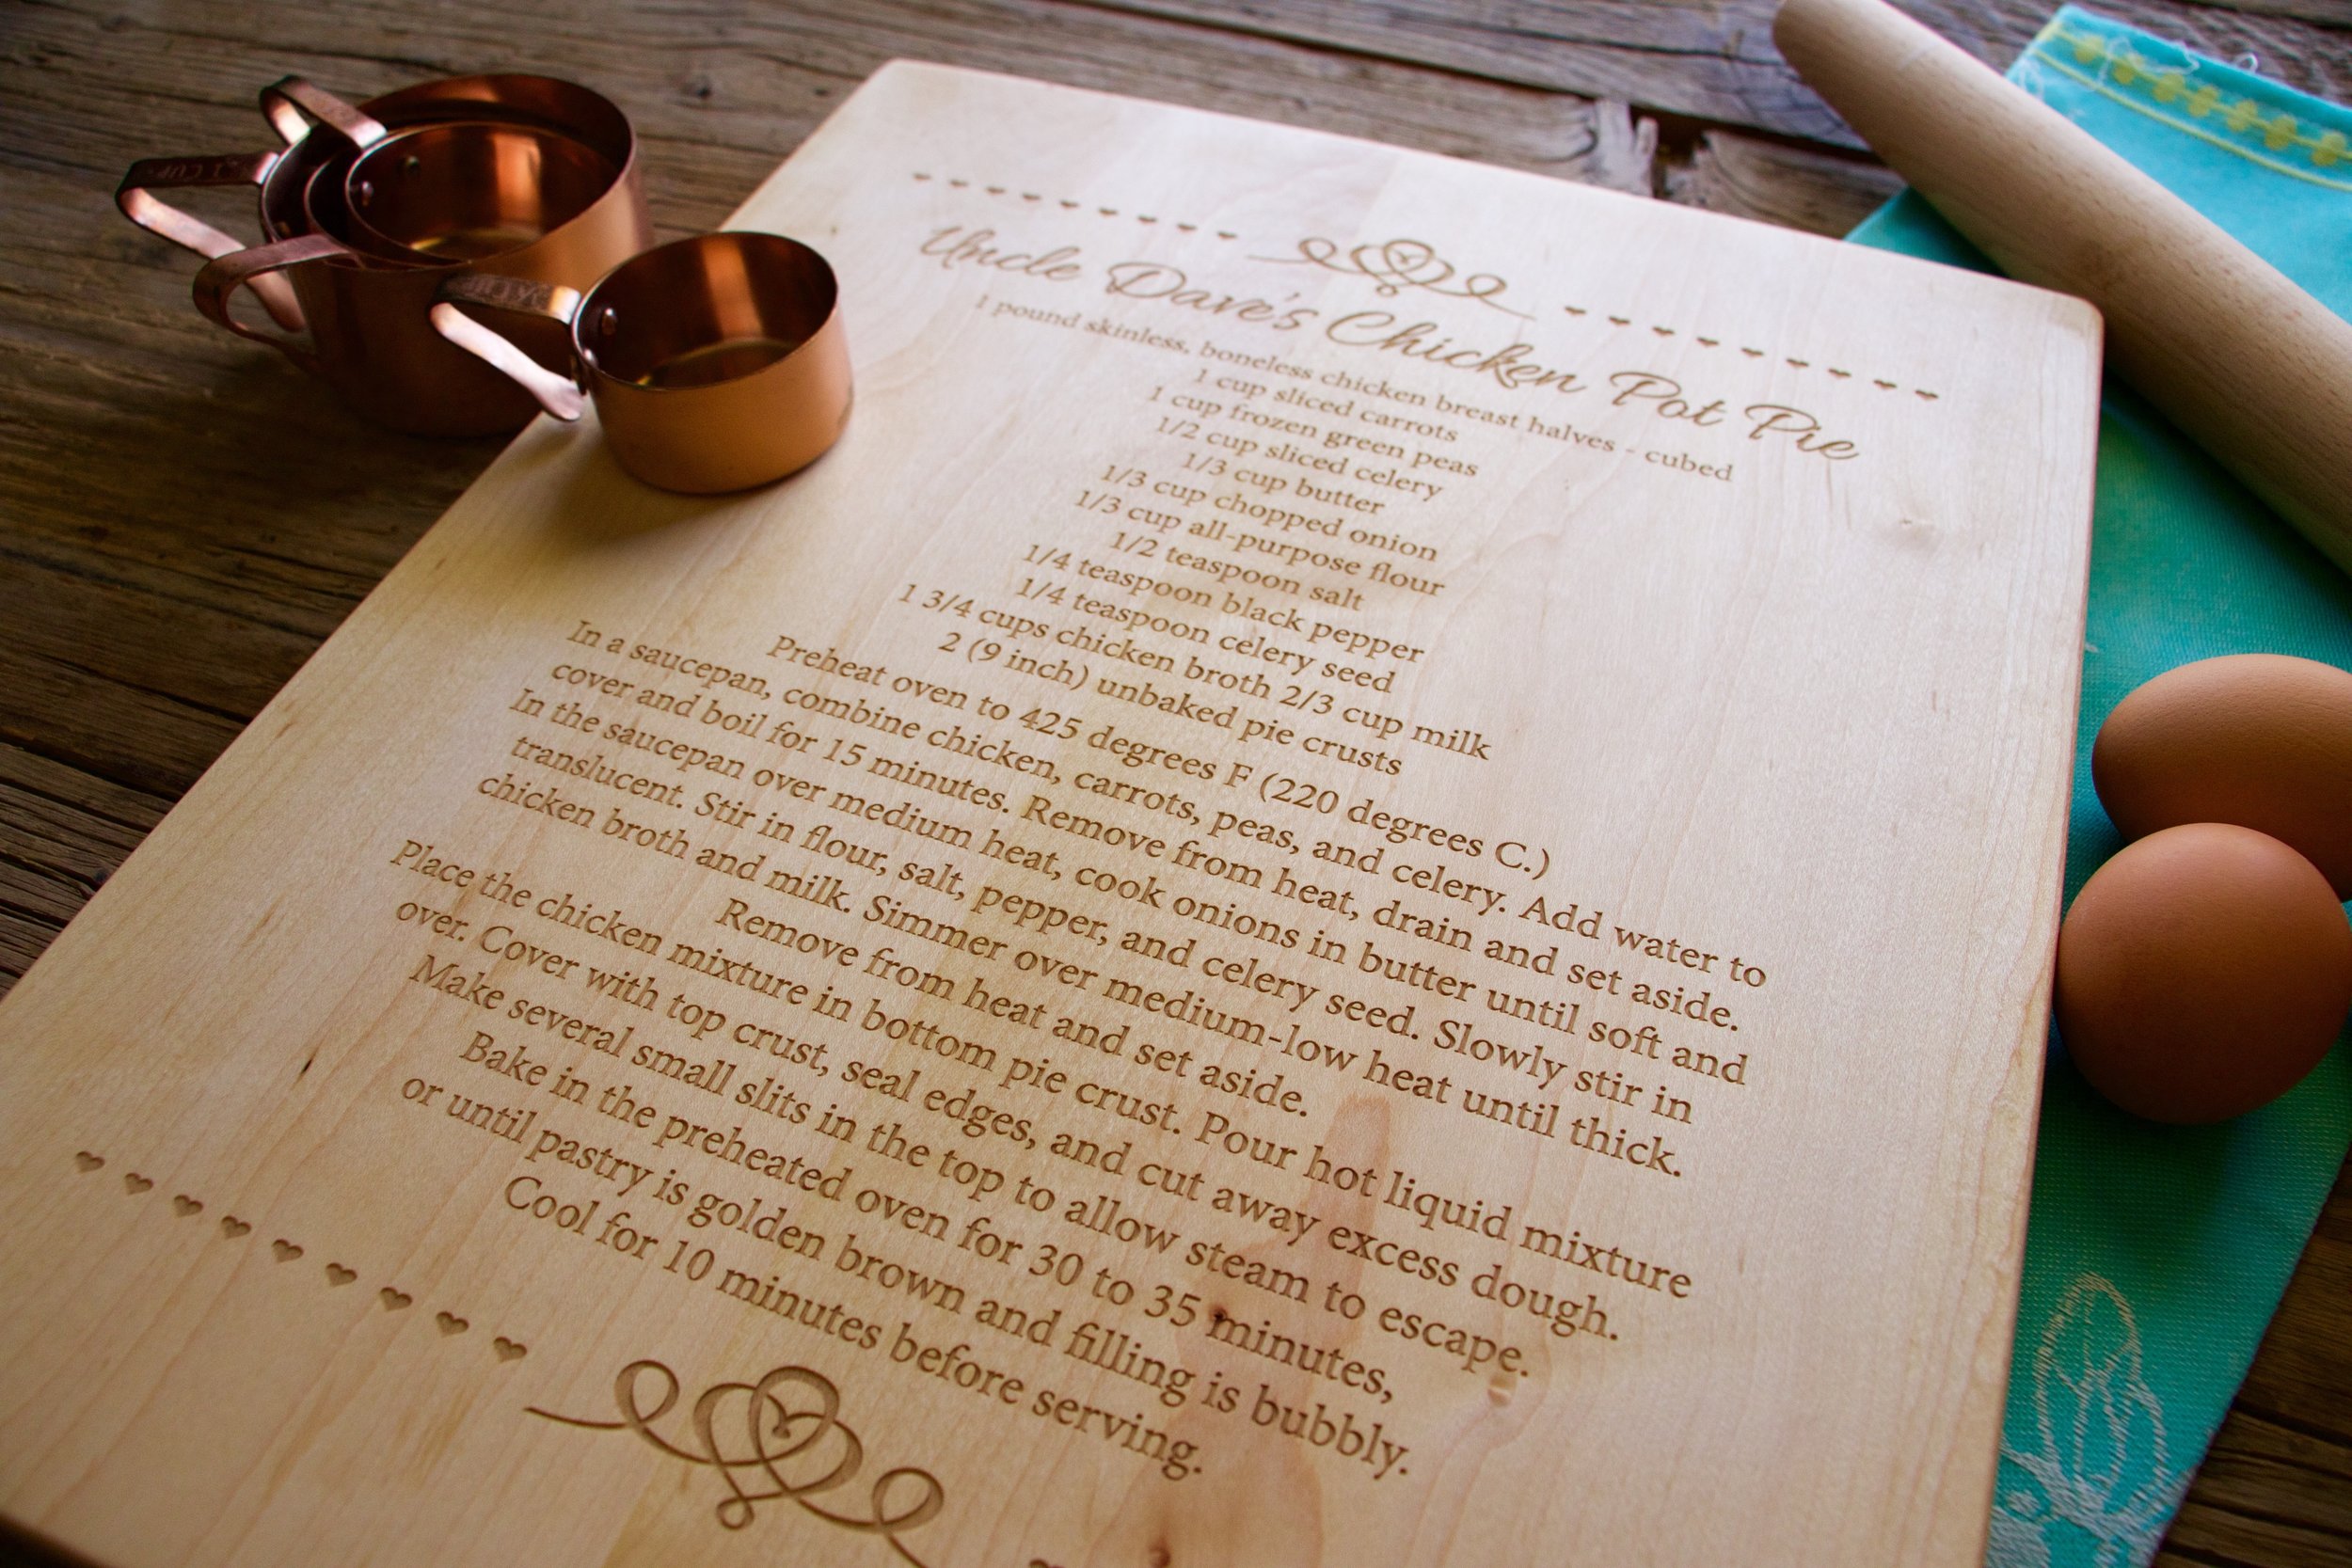 1 CUP
Uncle Dave's Chicken Pot Pie
1 pound skinless, boneless chicken breast halves - cubed
1 cup sliced carrots
1 cup frozen green peas
1/2 cup sliced celery
1/3 cup butter
1/3 cup chopped onion
1/3 cup all-purpose flour
1/2 teaspoon salt
1/4 teaspoon black pepper
1/4 teaspoon celery seed
1 3/4 cups chicken broth 2/3 cup milk
2 (9 inch) unbaked pie crusts
Preheat oven to 425 degrees F (220 degrees C.)
In a saucepan, combine chicken, carrots, peas, and celery. Add water to
cover and boil for 15 minutes. Remove from heat, drain and set aside.
In the saucepan over medium heat, cook onions in butter until soft and
translucent. Stir in flour, salt, pepper, and celery seed. Slowly stir in
chicken broth and milk. Simmer over medium-low heat until thick.
Remove from heat and set aside.
Place the chicken mixture in bottom pie crust. Pour hot liquid mixture
over. Cover with top crust, seal edges, and cut away excess dough.
Make several small slits in the top to allow steam to escape.
Bake in the preheated oven for 30 to 35 minutes,
or until pastry is golden brown and filling is bubbly.
Cool for 10 minutes before serving.